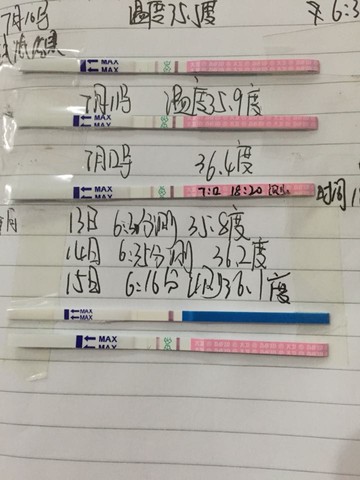 7月10号 温度35.5度 早6:3
MAX
MAX
7月11号 温度35.9度
MAX
MAX
7月12号 36.4度
MAX
MAX
7:12 18:20 时间1
13日 6:30分测 35.8度
14日 6:35分测 36.2度
15日 6:16分 测 36.1度
MAX
MAX
MAX
MAX